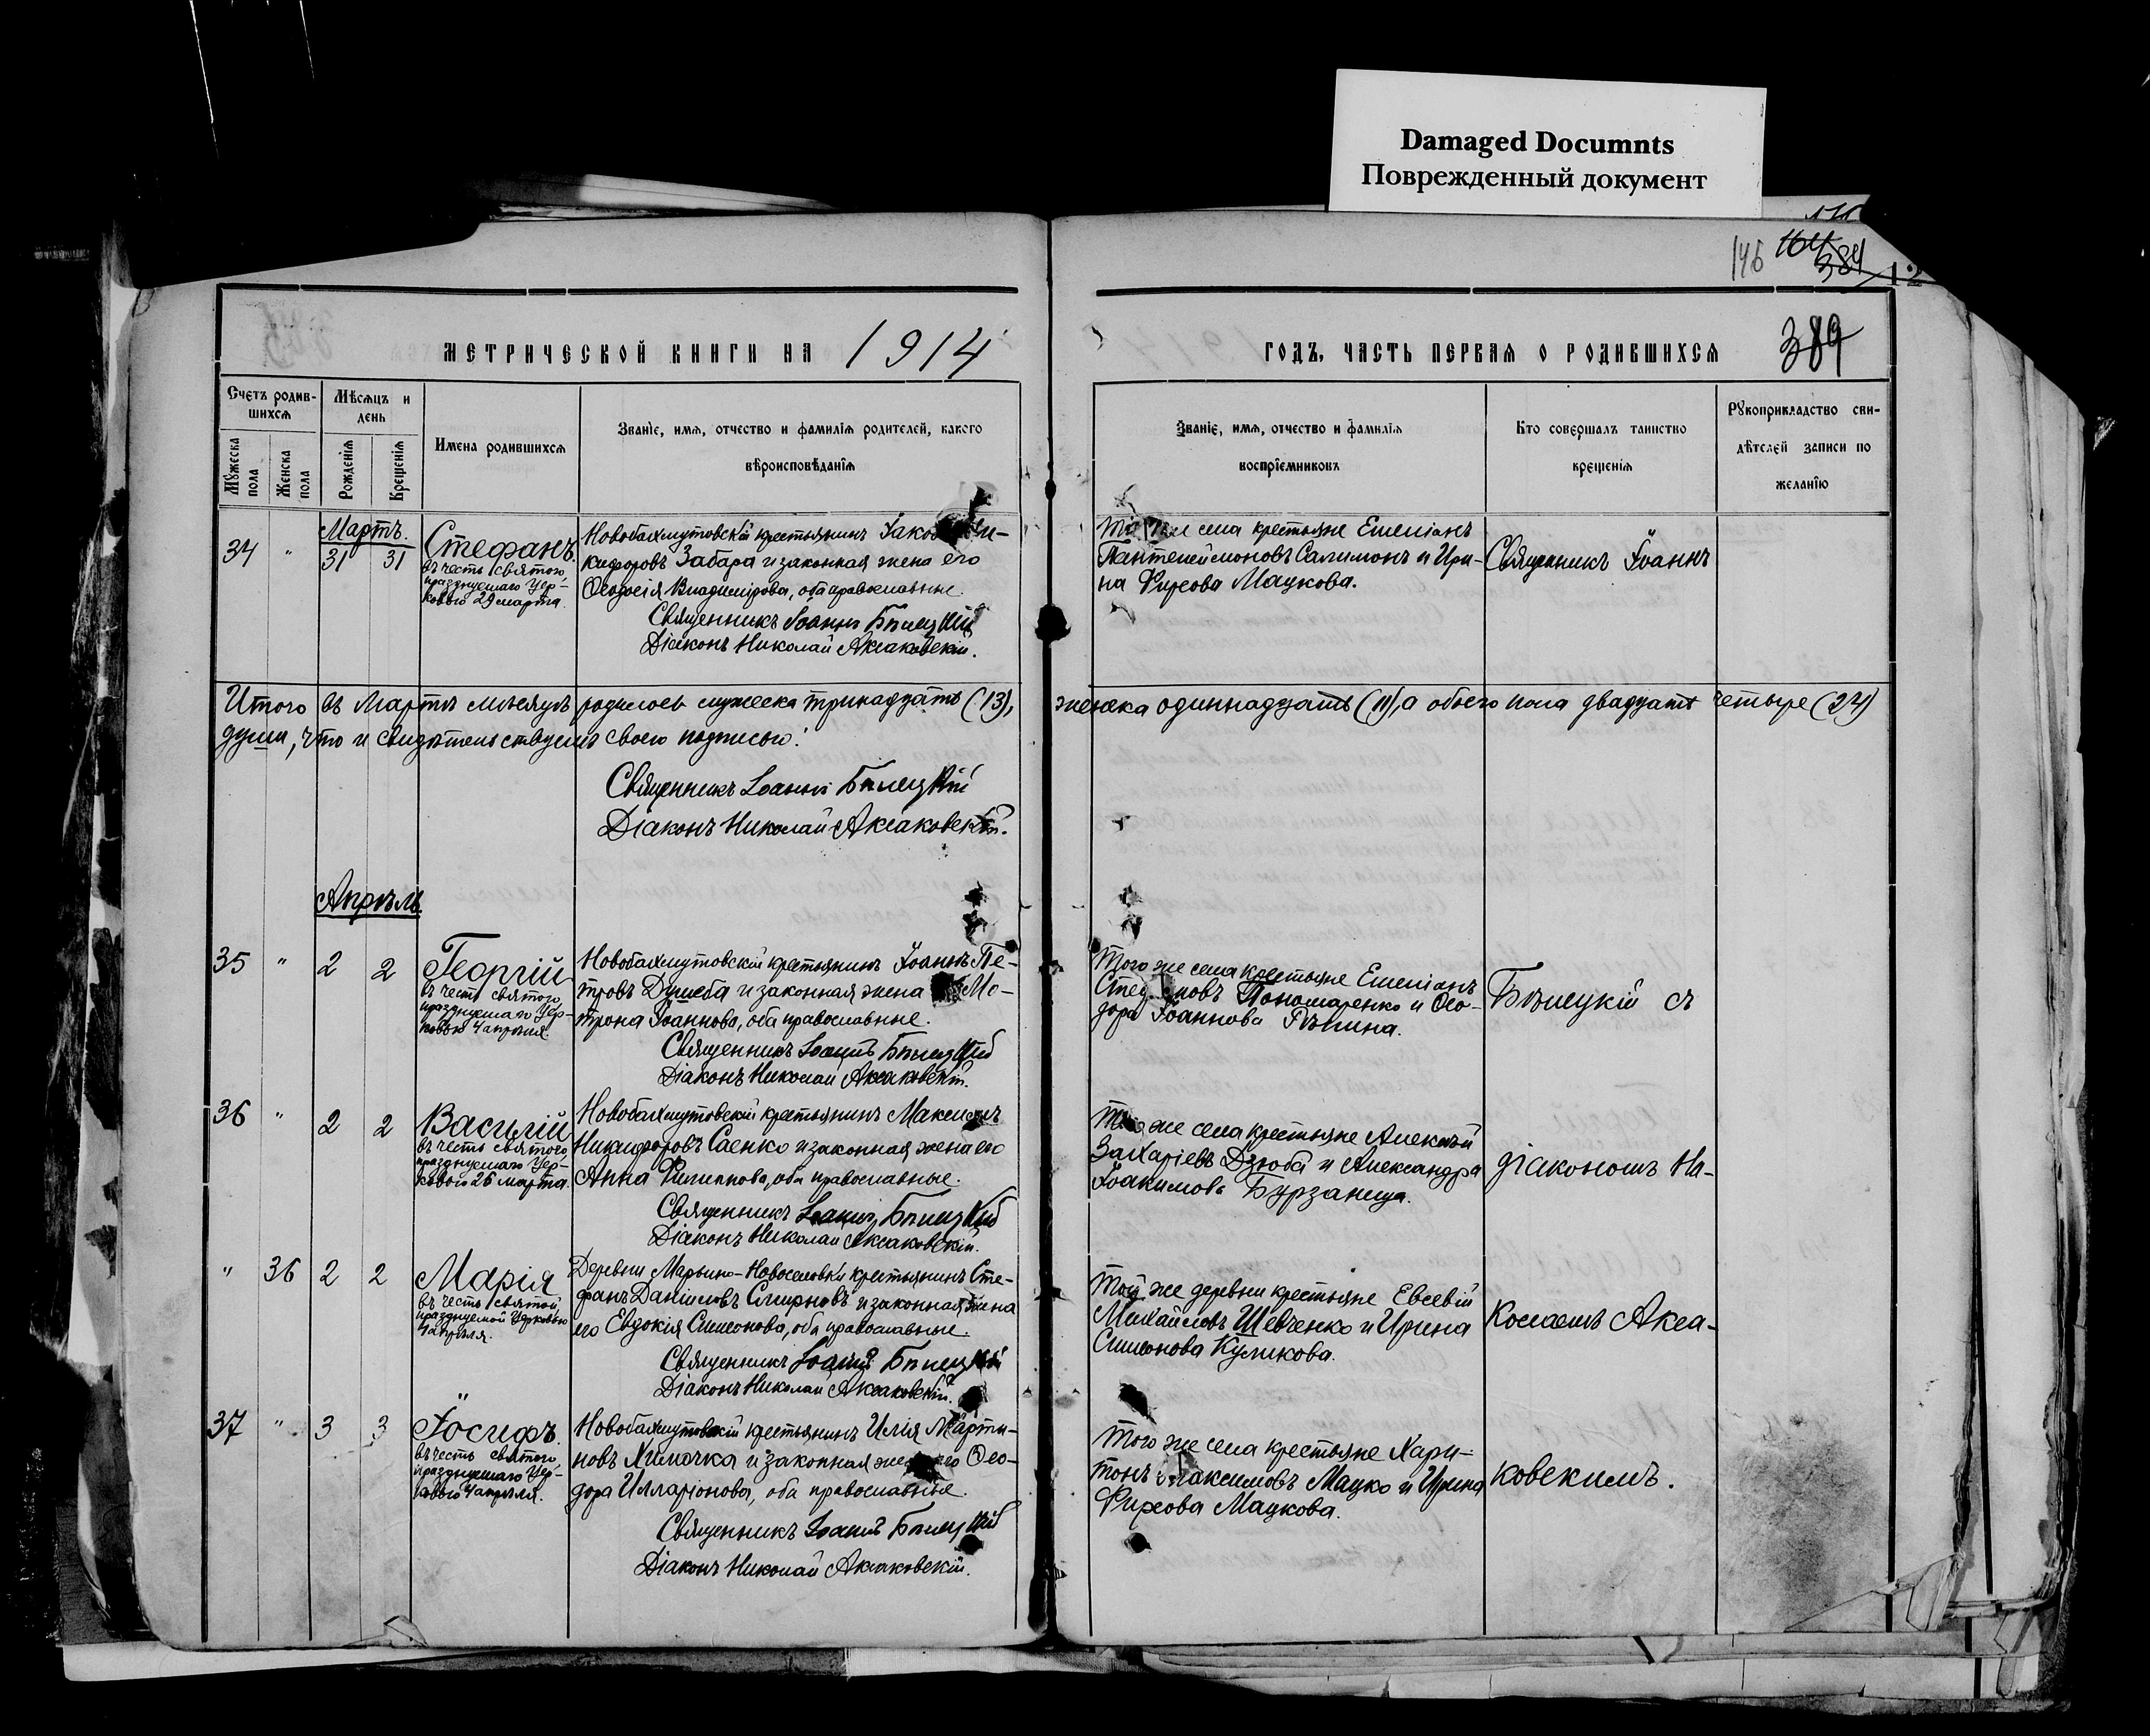 Damaged Documnts
Поврежденный документ
146
384
МЕТРИЧЕСКОЙ КНИГИ НА 1914
ГОДЪ, ЧАСТЬ ПЕРВАЯ О РОДИВШИХСЯ
389
Счетъ родив-
шихся
Мѣсяцъ и
день
Мужеска
пола
Женска
пола
Рожденія
Крещенія
Имена родившихся
Званіе, имя, отчество и фамилія родителей, какого
вѣроисповѣданія
Званіе, имя, отчество и фамилія
воспріемниковъ
Кто совершалъ таинство
крещенія
Рукоприкладство сви-
дѣтелей записи по
желанію
Мартъ.
34 " 31 31 Стефанъ.
въ честь святого,
празднуемаго Цер-
ковью 29 марта.
Новобахмутовскій крестьянинъ
кифоровъ Забара и законная жена его
Ѳеодосія Владимірова, оба православные.
Священникъ Іоаннъ Бѣлецкій
Діаконъ Николай Аксаковскій.
села крестьяне Емеліанъ
Пантелеймоновъ Салимонъ и Ири-
на Фирсова Мацкова.
Священникъ Іоаннъ
Итого въ Мартѣ мѣсяцѣ родилось мужеска тринадцать (13), женска одиннадцать (11), а обоего пола двадцать четыре (24)
души, что и свидѣтельствуемъ своею подписью:
Священникъ Іоаннъ Бѣлецкій
Діаконъ Николай Аксаковскій.
Апрѣль.
35 " 2 2 Георгій
въ честь святого,
празднуемаго Цер-
ковью 4 апрѣля.
Новобахмутовскій крестьянинъ Іоаннъ Пе-
тровъ Дулеба и законная жена Ма-
трона Іоаннова, оба православные.
Священникъ Іоаннъ Бѣлецкій
Діаконъ Николай Аксаковскій.
Того же села крестьяне Емеліанъ
Пономаренко и Ѳео-
дора Іоаннова Рѣпина.
Бѣлецкій съ
36 " 2 2 Василій
въ честь святого,
празднуемаго Цер-
ковью 26 марта.
Новобахмутовскій крестьянинъ Максимъ
Никифоровъ Саенко и законная жена его
Анна Филиппова, оба православные.
Священникъ Іоаннъ Бѣлецкій
Діаконъ Николай Аксаковскій.
Того же села крестьяне Алексѣй
Захаріевъ Дзюба и Александра
Іоакимова
діакономъ Ни-
" 36 2 2 Марія
въ честь святой,
празднуемой Церковью
апрѣля.
Деревни Марьино-Новоселовки крестьянинъ Сте-
фанъ Даніиловъ Смирновъ и законная жена
его Евдокія Симеонова, оба православные.
Священникъ Іоаннъ Бѣлецкій
Діаконъ Николай Аксаковскій.
Той же деревни крестьяне Евсевій
Михайловъ Шевченко и Ирина
Симеонова Куликова.
колаемъ Акса-
37 " 3 3 Іосифъ.
въ честь святого,
празднуемаго Цер-
ковью 4 апрѣля.
Новобахмутовскій крестьянинъ Илія Марти-
новъ Химочка и законная жена его Ѳео-
дора Илларіонова, оба православные.
Священникъ Іоаннъ Бѣлецкій
Діаконъ Николай Аксаковскій.
Того же села крестьяне Хари-
тонъ Максимовъ Мацко и Ирина
Фирсова Мацкова.
ковскимъ.